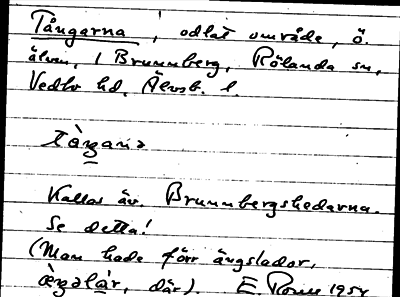 Tångarna, odlat område, ö.
älven, i Brunnberg, Rölanda sn,
Vedbo hd, Älvsb. l.
Kallas äv. Brunnbergshedarna.
Se detta!
(Man hade förr ängslador,
där). E 1954